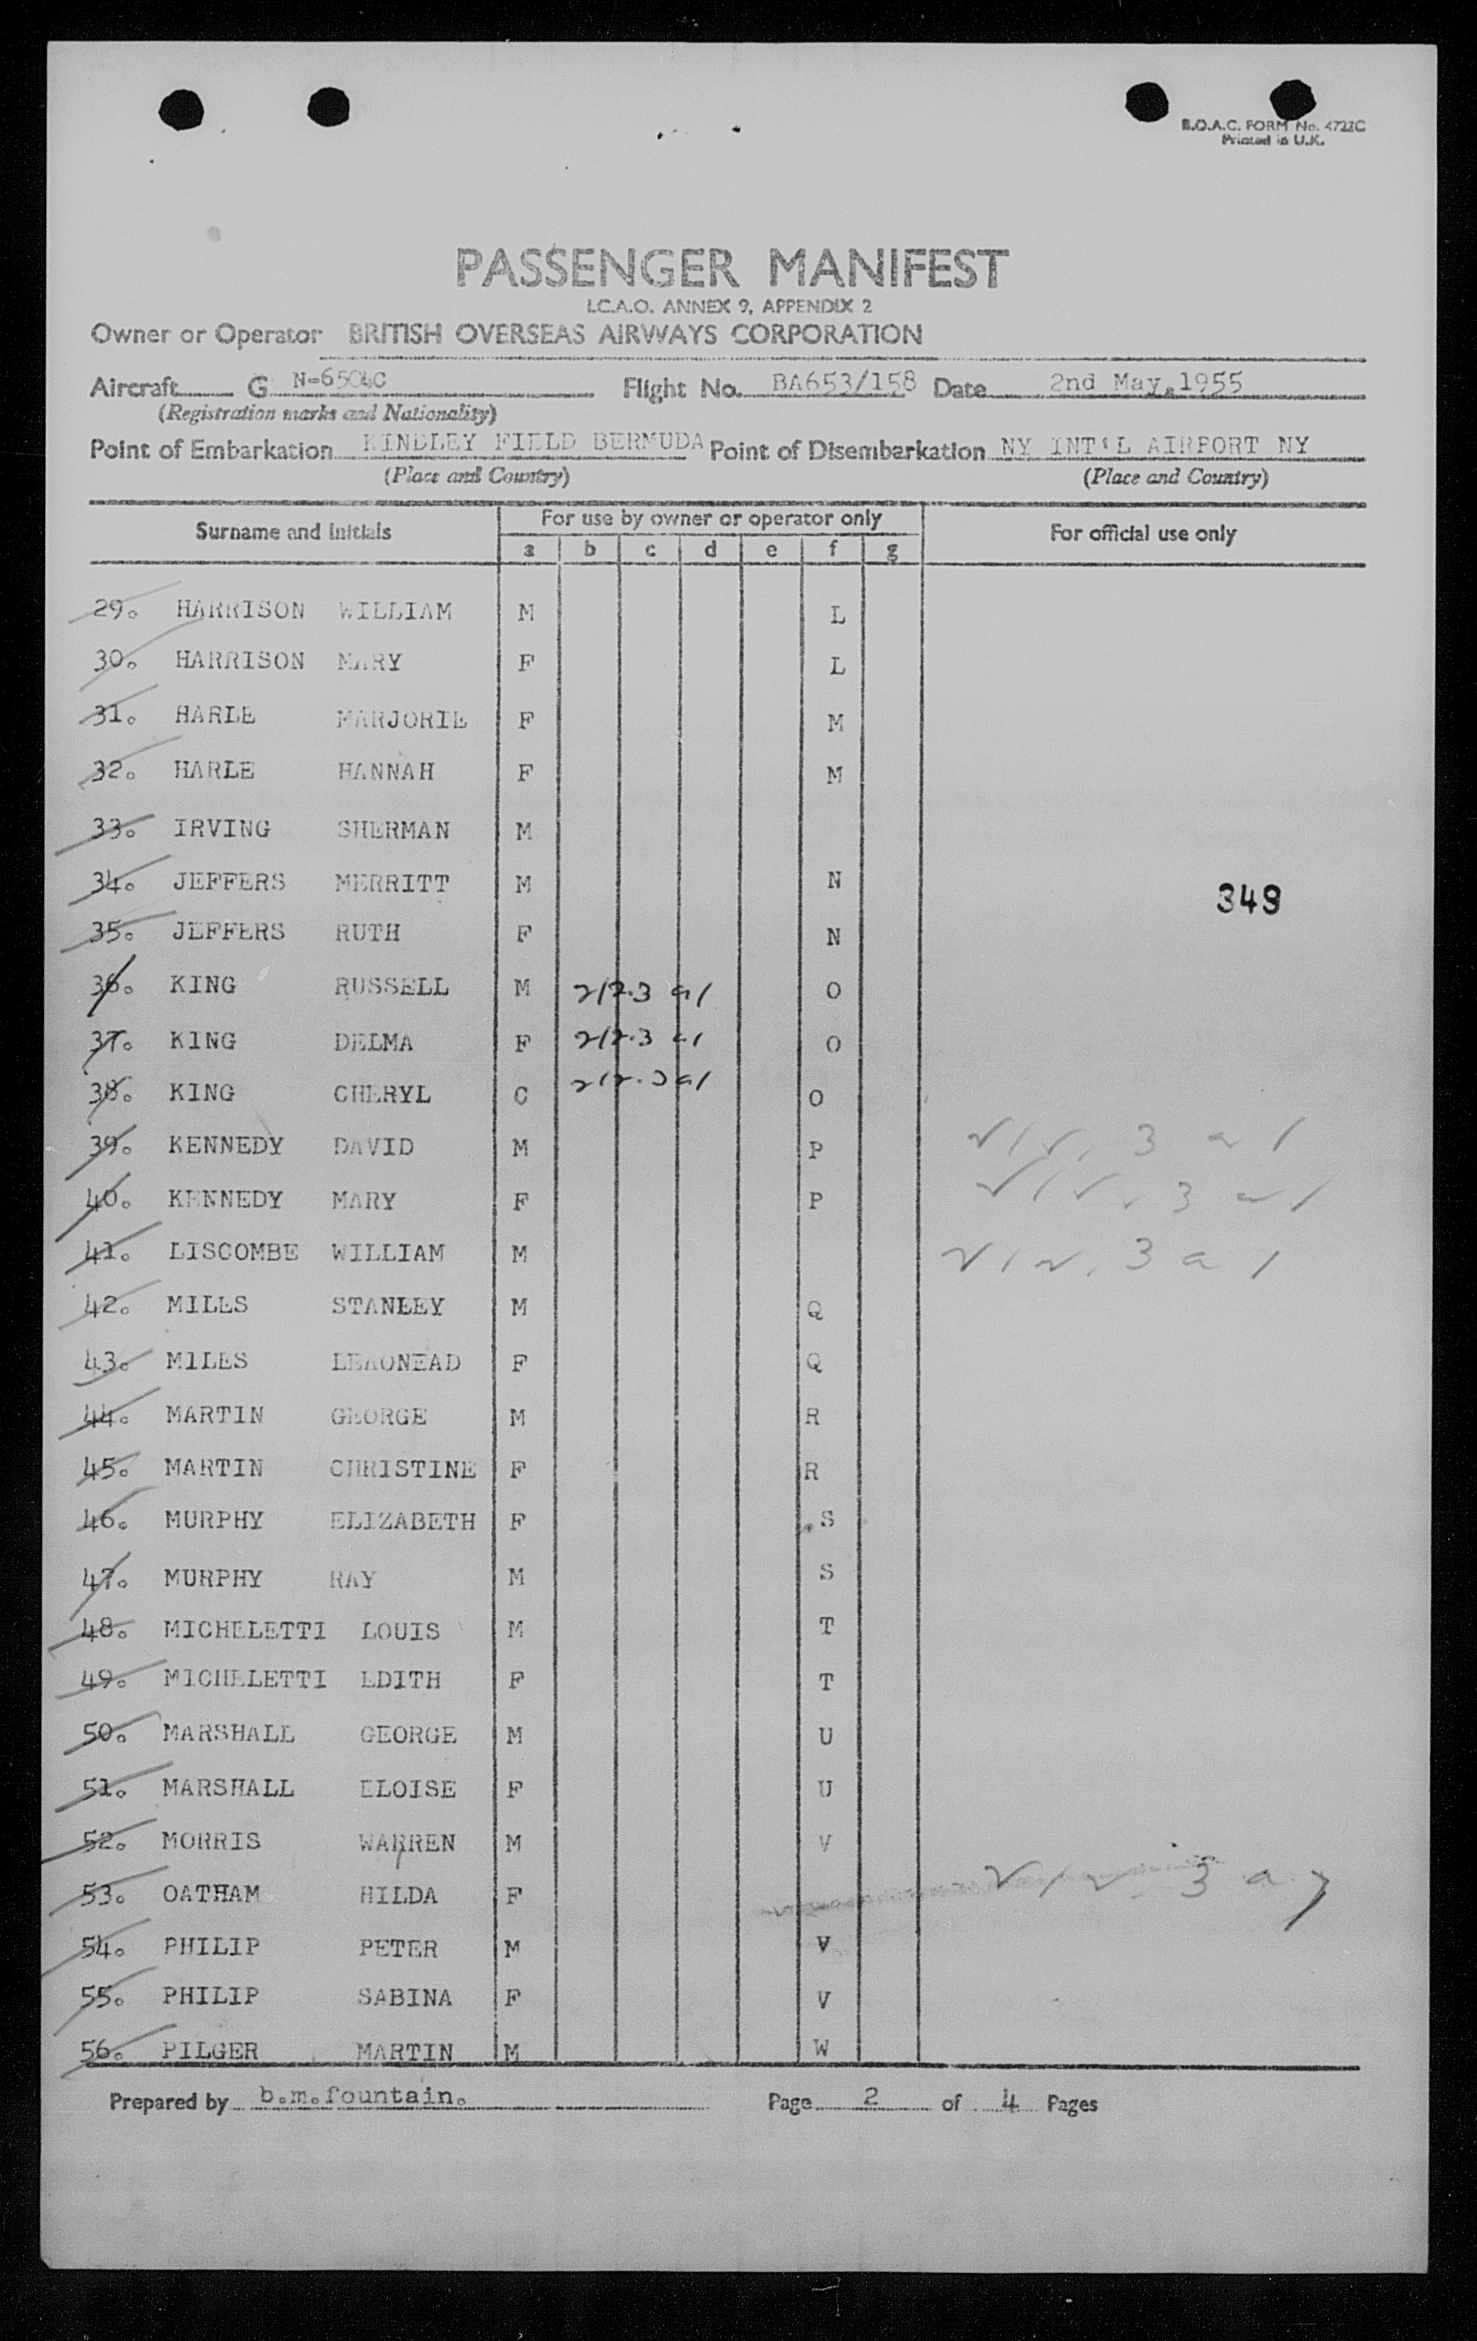 B.O.A.C. FORM No. 4722C
Printed in U.K.
PASSENGER MANIFEST
I.C.A.O. ANNEX 9, APPENDIX 2
Owner or Operator BRITISH OVERSEAS AIRWAYS CORPORATION
Aircraft G N-6504C Flight No. BA653/158 Date 2nd May,1955
(Registration marks and Nationality)
Point of Embarkation KINDLEY FIELD BERMUDA Point of Disembarkation NY INT'L AIRPORT NY
(Place and Country) (Place and Country)
Surname and Initials For use by owner or operator only For official use only
a b c d e f g
29. HARRISON WILLIAM M L
30. HARRISON MARY F L
31. HARLE MARJORIE F M
32. HARLE HANNAH F M
33. IRVING SHERMAN M
34. JEFFERS MERRITT M N
349
35. JEFFERS RUTH F N
36. KING RUSSELL M 212.3 a1 O
37. KING DELMA F 212.3 a1 O
38. KING CHERYL C 212.3 a1 O
39. KENNEDY DAVID M P 212.3 a 1
40. KENNEDY MARY F P 212.3 a 1
41. LISCOMBE WILLIAM M 212.3 a 1
42. MILES STANLEY M Q
43. MILES F Q
44. MARTIN GEORGE M R
45. MARTIN CHRISTINE F R
46. MURPHY ELIZABETH F S
47. MURPHY RAY M S
48. MICHELETTI LOUIS M T
49. MICHELETTI EDITH F T
50. MARSHALL GEORGE M U
51. MARSHALL ELOISE F U
52. MORRIS WARREN M V
53. OATHAM HILDA F 212 3 a
54. PHILIP PETER M V
55. PHILIP SABINA F V
56. PILGER MARTIN M W
Prepared by b.m.fountain. Page 2 of 4 Pages